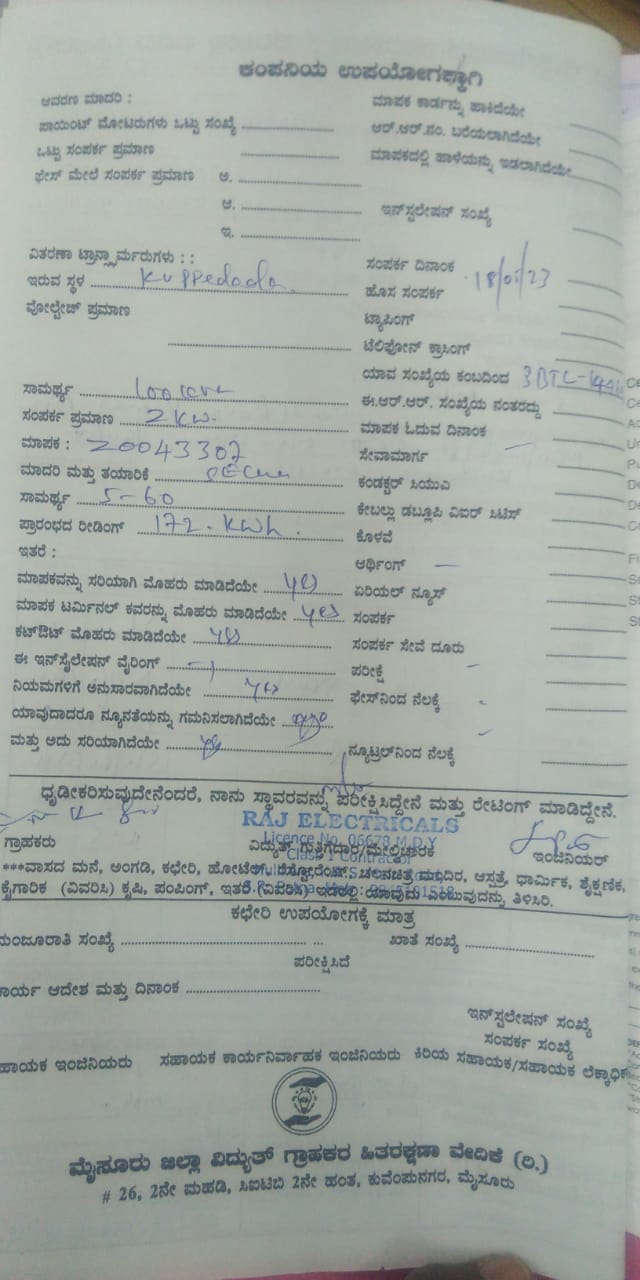 ಕಂಪನಿಯ ಉಪಯೋಗಕ್ಕಾಗಿ
ಆವರಣ ಮಾದರಿ :
ಮಾಪಕ ಕಾರ್ಡನ್ನು ಹಾಕಿದೆಯೇ
ಪಾಯಿಂಟ್ ಮೋಟರುಗಳು ಒಟ್ಟು ಸಂಖ್ಯೆ
ಆರ್.ಆರ್.ನಂ. ಬರೆಯಲಾಗಿದೆಯೇ
ಒಟ್ಟು ಸಂಪರ್ಕ ಪ್ರಮಾಣ
ಮಾಪಕದಲ್ಲಿ ಹಾಳೆಯನ್ನು ಇಡಲಾಗಿದೆಯೇ
ಫೇಸ್ ಮೇಲೆ ಸಂಪರ್ಕ ಪ್ರಮಾಣ ಅ.
ಆ. ಇನ್‌ಸ್ಟಲೇಷನ್ ಸಂಖ್ಯೆ
ಇ.
ವಿತರಣಾ ಟ್ರಾನ್ಸ್ಫಾರ್ಮರುಗಳು : :
ಸಂಪರ್ಕ ದಿನಾಂಕ
ಇರುವ ಸ್ಥಳ Kuppedada
ಹೊಸ ಸಂಪರ್ಕ
ವೋಲ್ಟೇಜ್ ಪ್ರಮಾಣ
ಟ್ಯಾಪಿಂಗ್
ಟೆಲಿಫೋನ್ ಕ್ರಾಸಿಂಗ್
ಯಾವ ಸಂಖ್ಯೆಯ ಕಂಬದಿಂದ
ಸಾಮರ್ಥ್ಯ
ಈ.ಆರ್.ಆರ್. ಸಂಖ್ಯೆಯ ನಂತರದ್ದು
ಸಂಪರ್ಕ ಪ್ರಮಾಣ 2 KW.
ಮಾಪಕ ಓದುವ ದಿನಾಂಕ
ಮಾಪಕ : 20043307
ಸೇವಾಮಾರ್ಗ
ಮಾದರಿ ಮತ್ತು ತಯಾರಿಕೆ
ಕಂಡಕ್ಟರ್ ಸಿಯುವಿ
ಸಾಮರ್ಥ್ಯ 5-60
ಕೇಬಲ್ಲು ಡಬ್ಲೂಪಿ ವಿಐರ್ ಸಿಟಿಸ್
ಪ್ರಾರಂಭದ ರೀಡಿಂಗ್ 172. KWh.
ಕೊಳವೆ
ಇತರೆ :
ಆರ್ಥಿಂಗ್ —
ಮಾಪಕವನ್ನು ಸರಿಯಾಗಿ ಮೊಹರು ಮಾಡಿದೆಯೇ yes
ಏರಿಯಲ್ ನ್ಯೂಸ್
ಮಾಪಕ ಟರ್ಮಿನಲ್ ಕವರನ್ನು ಮೊಹರು ಮಾಡಿದೆಯೇ yes
ಸಂಪರ್ಕ
ಕಟ್‌ಔಟ್ ಮೊಹರು ಮಾಡಿದೆಯೇ yes
ಸಂಪರ್ಕ ಸೇವೆ ದೂರು
ಈ ಇನ್‌ಸೈಲೇಷನ್ ವೈರಿಂಗ್
ಪರೀಕ್ಷೆ
ನಿಯಮಗಳಿಗೆ ಅನುಸಾರವಾಗಿದೆಯೇ yes
ಫೇಸ್‌ನಿಂದ ನೆಲಕ್ಕೆ
ಯಾವುದಾದರೂ ನ್ಯೂನತೆಯನ್ನು ಗಮನಿಸಲಾಗಿದೆಯೇ
ಮತ್ತು ಅದು ಸರಿಯಾಗಿದೆಯೇ
ನ್ಯೂಟ್ರಲ್‌ನಿಂದ ನೆಲಕ್ಕೆ
ಧೃಡೀಕರಿಸುವುದೇನೆಂದರೆ, ನಾನು ಸ್ಥಾವರವನ್ನು ಪರೀಕ್ಷಿಸಿದ್ದೇನೆ ಮತ್ತು ರೇಟಿಂಗ್ ಮಾಡಿದ್ದೇನೆ.
RAJ ELECTRICALS
Licence No. 06678 M.D.Y
ಗ್ರಾಹಕರು ವಿದ್ಯುತ್ ಗುತ್ತಿಗೆದಾರ/ಮೇಲ್ವಿಚಾರಕ ಇಂಜಿನಿಯರ್
Class 1 Contractor
***ವಾಸದ ಮನೆ, ಅಂಗಡಿ, ಕಛೇರಿ, ಹೋಟೆಲ್, ರೆಸ್ಟೋರೆಂಟ್, ಚಲನಚಿತ್ರ ಮಂದಿರ, ಆಸ್ಪತ್ರೆ, ಧಾರ್ಮಿಕ, ಶೈಕ್ಷಣಿಕ,
ಕೈಗಾರಿಕ (ವಿವರಿಸಿ) ಕೃಷಿ, ಪಂಪಿಂಗ್, ಇತರೆ (ವಿವರಿಸಿ) ಇದರಲ್ಲಿ ಯಾವುದು ಎಂಬುವುದನ್ನು ತಿಳಿಸಿರಿ.
ಕಛೇರಿ ಉಪಯೋಗಕ್ಕೆ ಮಾತ್ರ
ಮಂಜೂರಾತಿ ಸಂಖ್ಯೆ ಖಾತೆ ಸಂಖ್ಯೆ
ಪರೀಕ್ಷಿಸಿದೆ
ಕಾರ್ಯ ಆದೇಶ ಮತ್ತು ದಿನಾಂಕ
ಇನ್‌ಸ್ಟಲೇಷನ್ ಸಂಖ್ಯೆ
ಸಂಪರ್ಕ ಸಂಖ್ಯೆ
ಸಹಾಯಕ ಇಂಜಿನಿಯರು ಸಹಾಯಕ ಕಾರ್ಯನಿರ್ವಾಹಕ ಇಂಜಿನಿಯರು ಕಿರಿಯ ಸಹಾಯಕ/ಸಹಾಯಕ ಲೆಕ್ಕಾಧಿಕ
ಮೈಸೂರು ಜಿಲ್ಲಾ ವಿದ್ಯುತ್ ಗ್ರಾಹಕರ ಹಿತರಕ್ಷಣಾ ವೇದಿಕೆ (ರಿ.)
# 26, 2ನೇ ಮಹಡಿ, ಸಿಐಟಿಬಿ 2ನೇ ಹಂತ, ಕುವೆಂಪುನಗರ, ಮೈಸೂರು